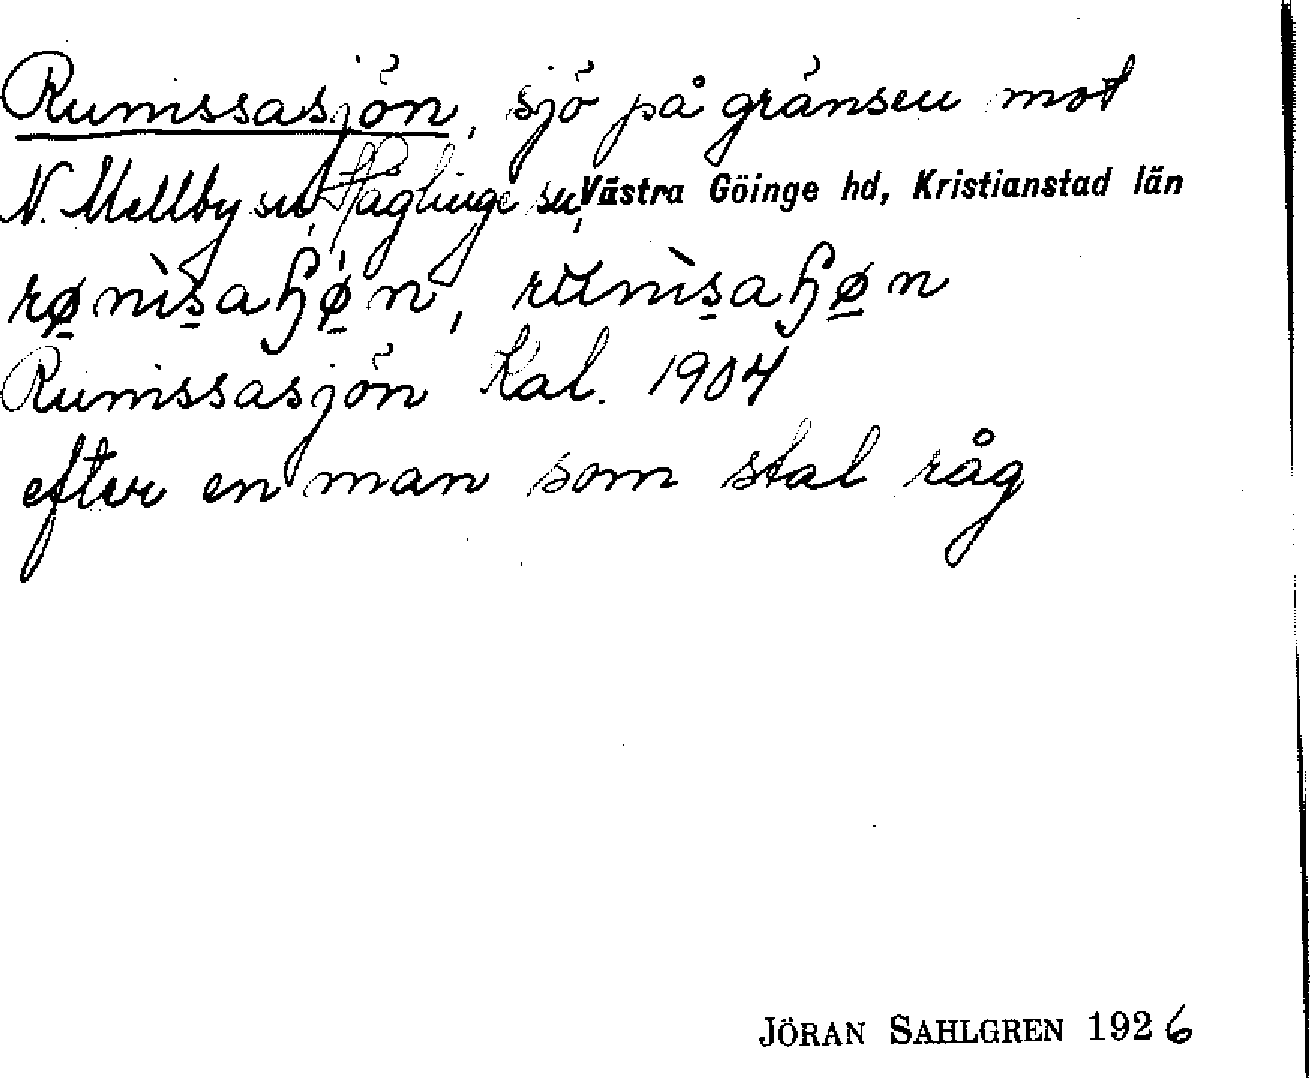 Rumssasjön, sjö på gränsen mot
N. Mellby sn, Häglinge sn, Västra Göinge hd, Kristianstad län
Rumssasjön Kal. 1904
efter en man som stal råg
JÖRAN SAHLGREN 1926